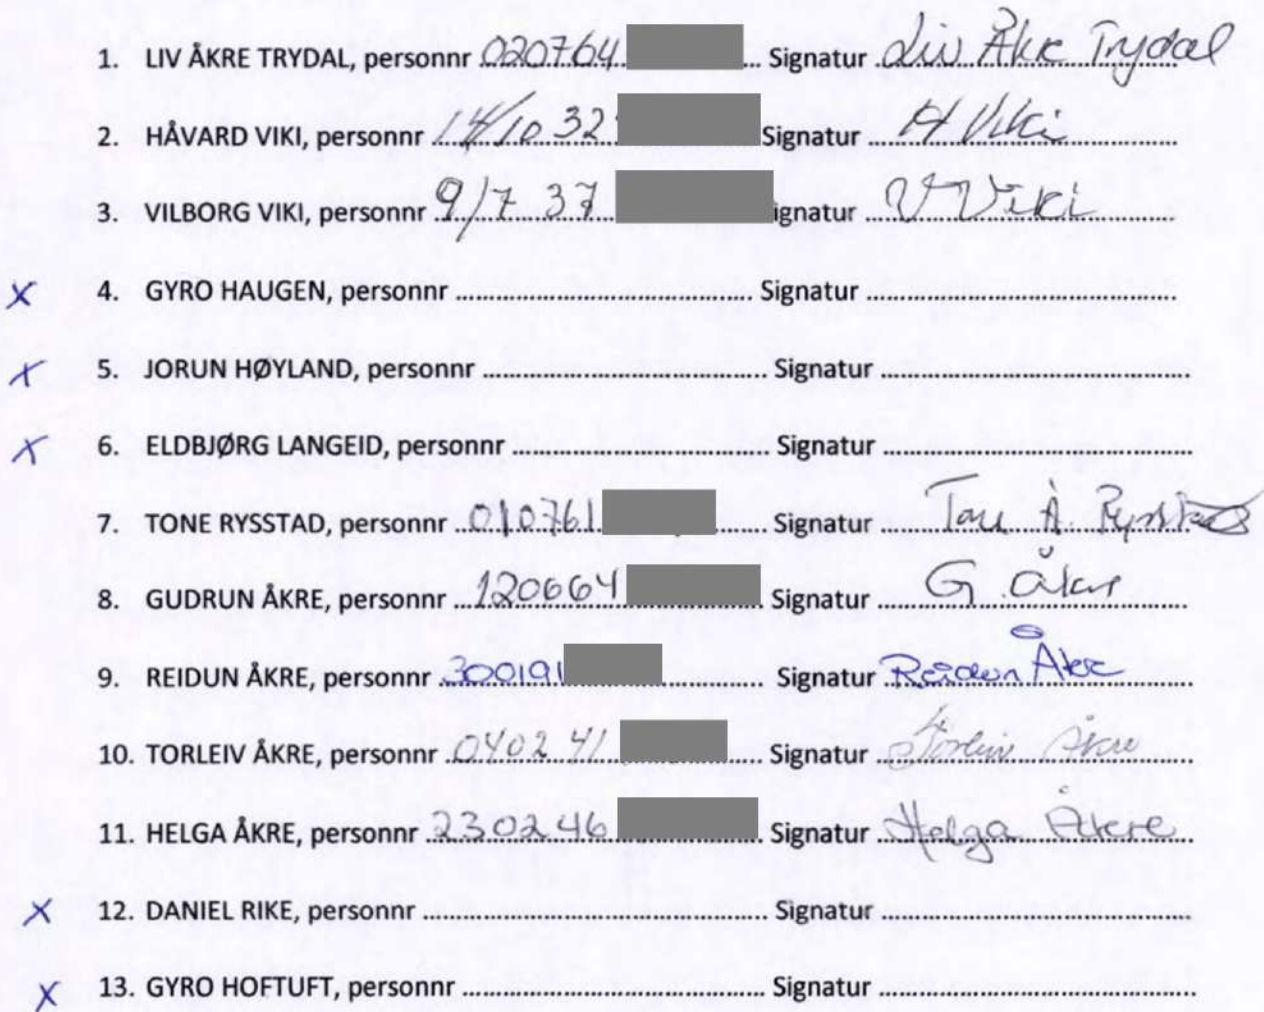 1. LIV ÅKRE TRYDAL, personnr 020764 Signatur Liv Åkre Trydal
2. HÅVARD VIKI, personnr 14/10 32 Signatur H Viki
3. VILBORG VIKI, personnr 9/7 37 ignatur V Viki
X 4. GYRO HAUGEN, personnr Signatur
X 5. JORUN HØYLAND, personnr Signatur
X 6. ELDBJØRG LANGEID, personnr Signatur
7. TONE RYSSTAD, personnr 010761 Signatur Tone Å. Rysstad
8. GUDRUN ÅKRE, personnr 120664 Signatur G Åkre
9. REIDUN ÅKRE, personnr 300191 Signatur Reidun Åkre
10. TORLEIV ÅKRE, personnr 040241 Signatur Torleiv Åkre
11. HELGA ÅKRE, personnr 230246 Signatur Helga Åkre
X 12. DANIEL RIKE, personnr Signatur
X 13. GYRO HOFTUFT, personnr Signatur